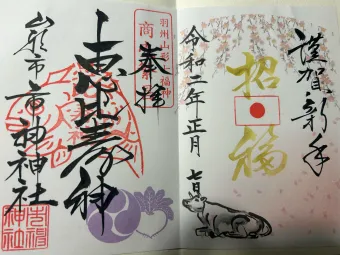 謹賀新年
招福
令和二年正月
七日
羽州山形七福神
商
奉拝
恵比寿神
山形市
市神神社